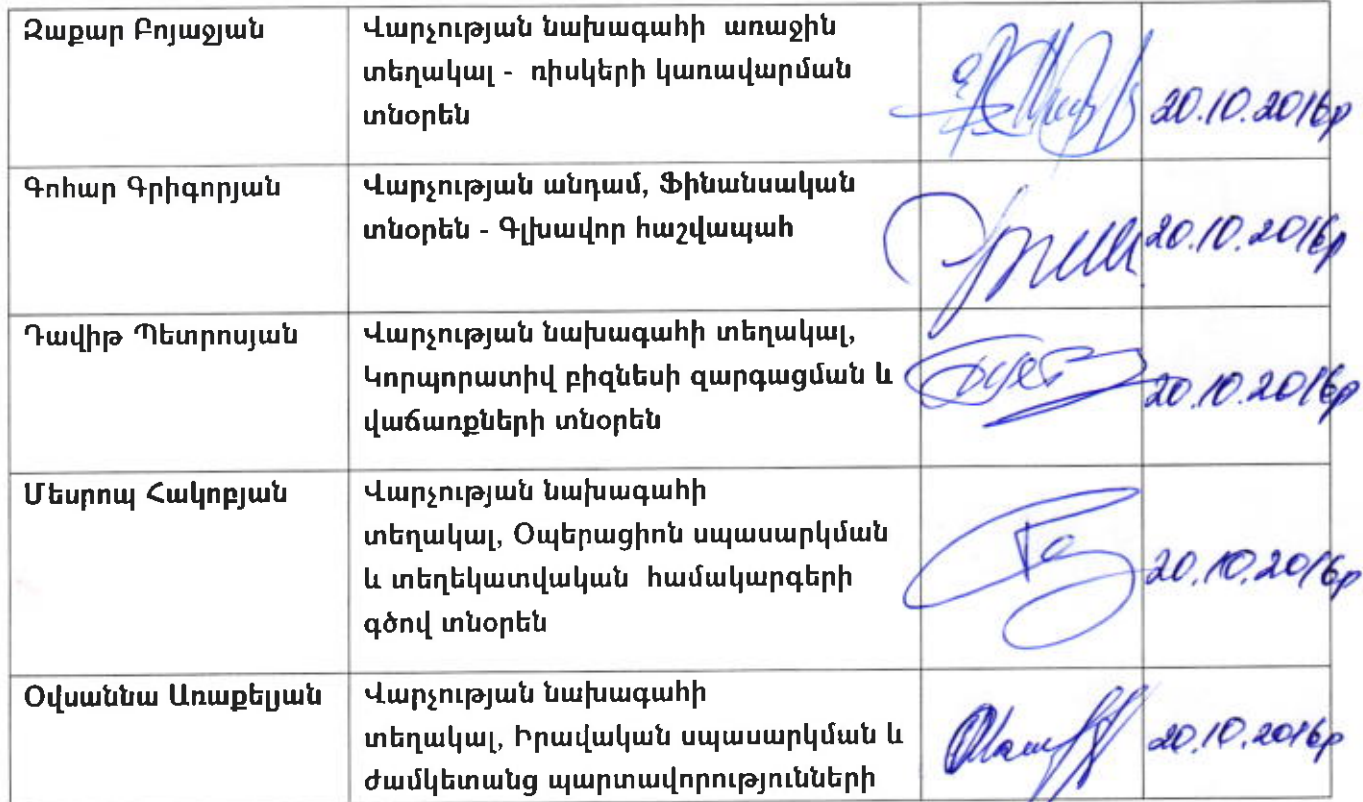 Զաքար Բոյաջյան
Վարչության նախագահի առաջին
տեղակալ - ռիսկերի կառավարման
տնօրեն
20.10.2016թ
Գոհար Գրիգորյան
Վարչության անդամ, Ֆինանսական
տնօրեն - Գլխավոր հաշվապահ
20.10.2016թ
Դավիթ Պետրոսյան
Վարչության նախագահի տեղակալ,
Կորպորատիվ բիզնեսի զարգացման և
վաճառքների տնօրեն
20.10.2016թ
Մեսրոպ Հակոբյան
Վարչության նախագահի
տեղակալ, Օպերացիոն սպասարկման
և տեղեկատվական համակարգերի
գծով տնօրեն
20.10.2016թ
Օվսաննա Առաքելյան
Վարչության նախագահի
տեղակալ, Իրավական սպասարկման և
ժամկետանց պարտավորությունների
20.10.2016թ